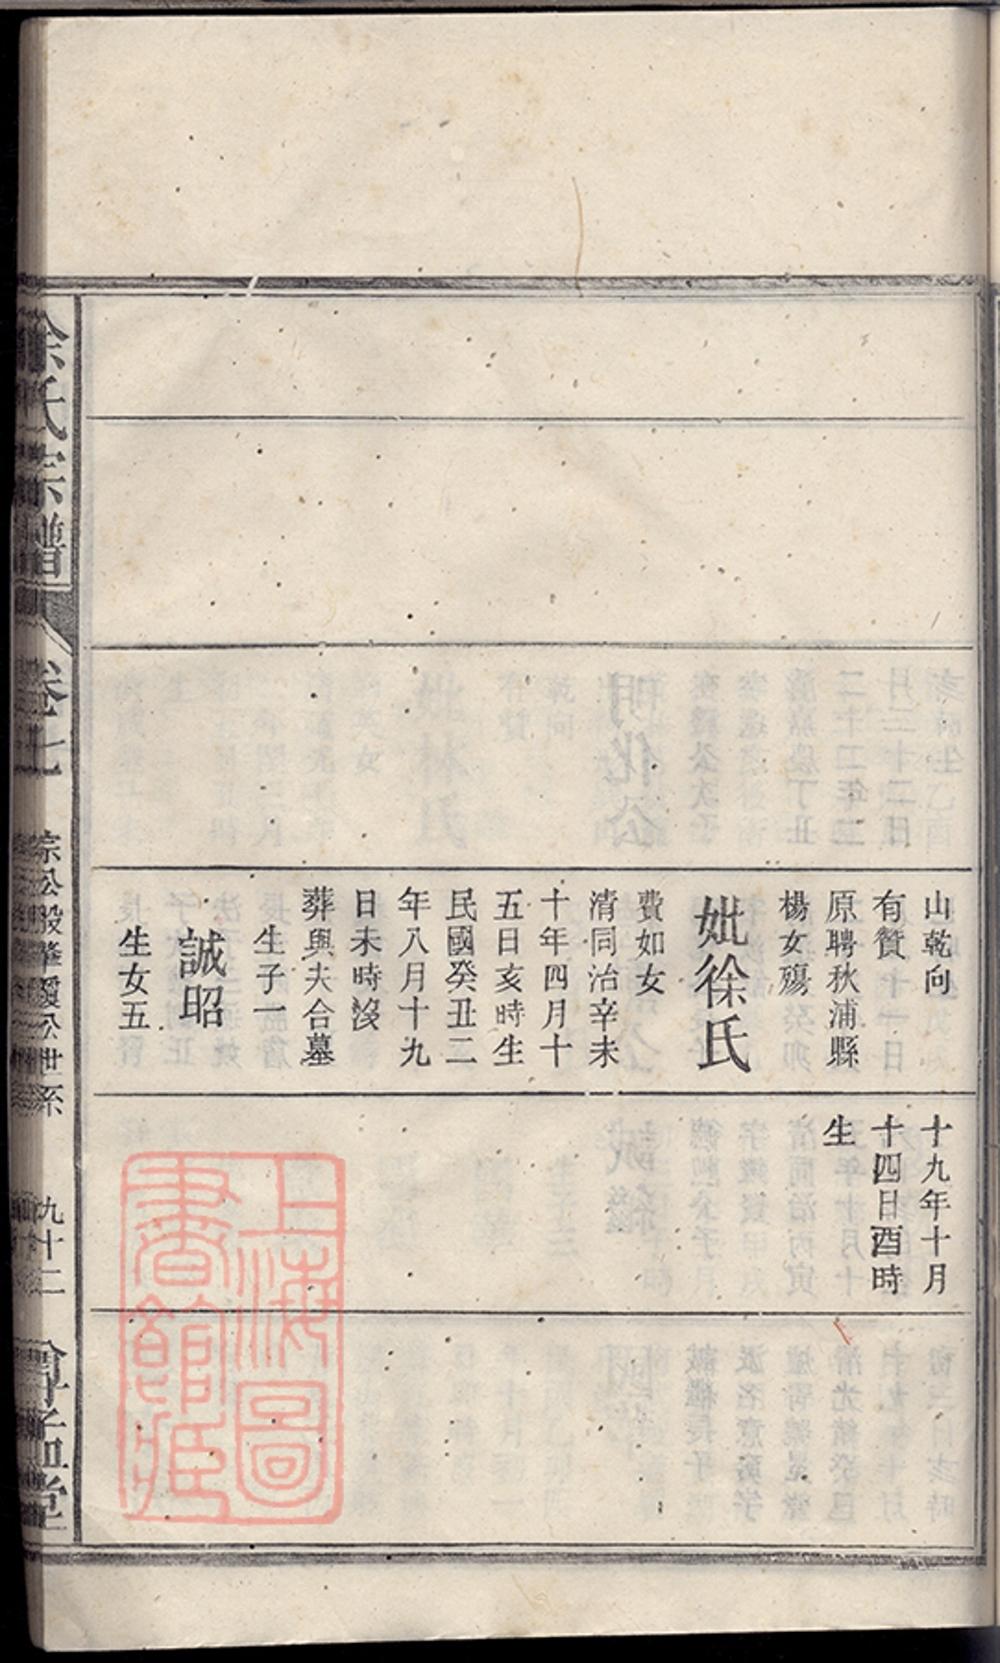 山乾向
有贊
原聘秋浦縣
楊女殤
妣徐氏
費如女
清同治辛未
十年四月十
五日亥時生
民國癸丑二
年八月十九
日未時沒
葬與夫合墓
生子一
誠昭
生女五
十九年十月
十四日酉時
生
余氏宗譜
卷七
九十二
上海圖
書館藏